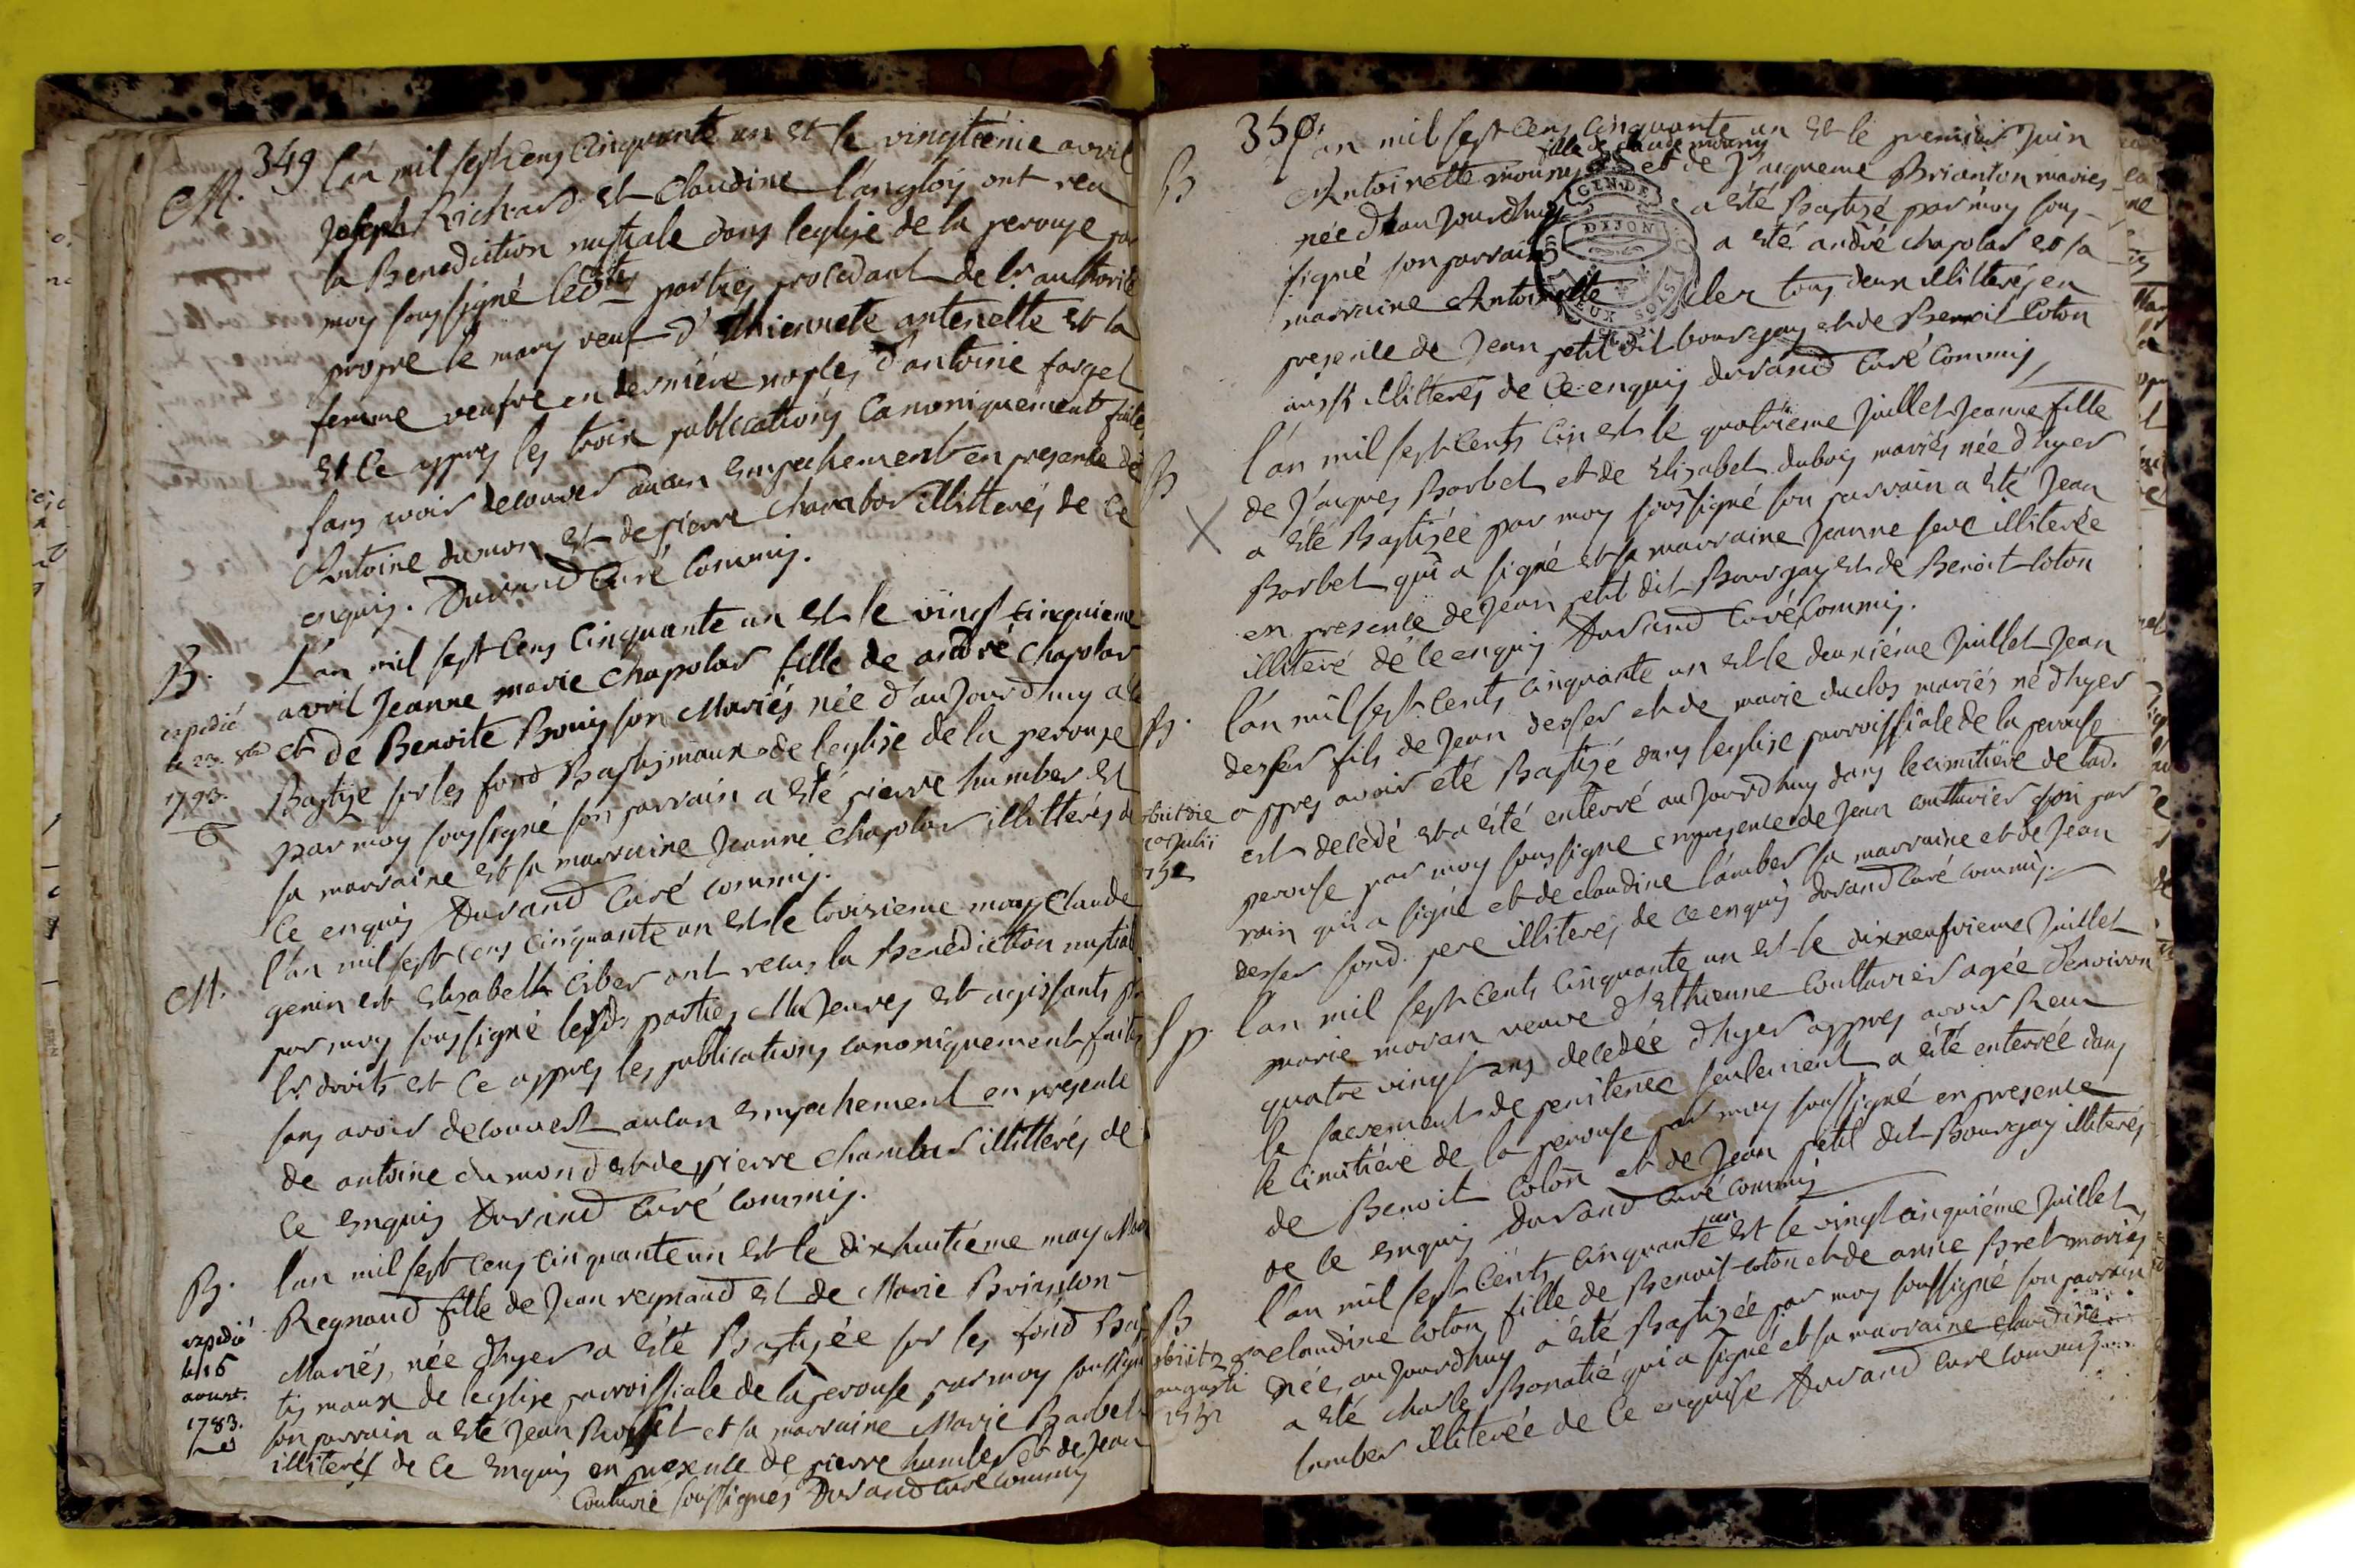 349
M.
L'an mil sept cens cinquante un et le vingtiéme avril
Joseph Richard et Claudine Langloy ont reu
la Benediction nuptiale dans leglise de la perouse par
moy soussigné lesdtes parties procedant de lr. authorité
propre le mary veuf d'Ethiennete antenette et la
femme veufve en derniére nopces d'antoine forget
et ce appres les trois publications Canoniquement faites
sans avoir decouver aucun empechement en presence de
Antoine dumon et de pierre Chambar illitterés de ce
enquis. Durand Curé Commis.
B.
expedié
le 23. 8bre
1793.
L'an mil sept cens cinquante un et le vingt cinquieme
avril Jeanne marie chapolar fille de andré chapolar
et de Benoite Bouis son Mariés née d'aujourdhuy a été
Baptize sur les fond Baptismaux de leglise de la perouse
par moy soussigné son parrain a eté pierre humber et
sa marraine et sa marraine Jeanne chapolar illitterés de
Ce enquis Durand Curé commis.
M.
L'an mil sept cens cinquante un et le troizieme may Claude
genin et Elisabeth Ciber ont recus la Benediction nuptial
par moy soussigné lesds. parties Majeures et agissants
lrs. droits et ce appres les publications canoniquement faites
sans avoir decouvert aucun empechement en presence
de antoine dumond et de pierre Chambar illitterés de
Ce enquis Durand Curé Commis.
B.
expedié
le 15
aoust.
1783.
L'an mil sept cens cinquante un et le dixhuitiéme may
Regnaud fille de Jean regnaud et de Marie Brinston
Mariés, née dhyer a eté Baptizée sur les fond Bap
tismaux de leglise parroissiale de la perouse par moy soussigné
son parrain a ete Jean et sa marraine Marie Barbet
illiterés de ce enquis en presence de pierre humber et de Jean
Couturié soussignés Durand Curé Commis
350
B
L'an mil sept cens cinquante un et le premier Juin
fille de claude mouny
Antoinette mouny et de Jaqueme Brianton mariés
née d'aujourdhuy a eté Baptizé par moy sous-
signé son parrain a eté andré chapolar et sa
marraine Antoinette tous deux illitterés en
presence de Jean petit dit bourgay et de Benoit Coton
aussi illitterés de Ce enquis durand Curé Commis
GEN DE
DIJON
DEUX SOLS
B
X
L'an mil sept Cents cin et le quatriéme Juillet Jeanne fille
de Jacques Barbet et de Elisabet dubois mariés née dhyer
a eté Baptizée par moy soussigné son parrain a eté Jean
Barbet qui a signé et sa marraine Jeanne seve illiterée
en presence de Jean petit dit Bourgay et de Benoit Coton
illiteré de ce enquis Durand Curé Commis.
B.
obiit die
Julii
L'an mil sept cents cinquante un et le deuxiéme Juillet Jean
desser fils de Jean desser et de marie duclos mariés né dhyer
appres avoir eté Baptizé dans leglise parroissiale de la perouse
est decedé et a eté enterré aujourdhuy dans le cimitiére de lad.
perouse par moy soussigné en presence de Jean couturier son par
rain qui a signé et de claudine lamber sa marraine et de Jean
desser sond. pere illiteres de ce enquis Durand Curé Commis.
Sp.
L'an mil sept cents cinquante un et le dixneufvieme Juillet
marie moran veuve d'Ethienne Couturier agée d'environ
quatre vingt ans decedée dhyer appres avoir Receu
le sacrement de penitence seulement a été enterrée dans
le cimitiére de la perouse par moy soussigné en presence
de Benoit Coton et de Jean petit dit Bourgay illiterés
de ce enquis Durand Curé Commis
B
obiit 28a
augusti
1751
L'an mil sept Cents cinquante un et le vingt cinquiéme Juillet
claudine Coton fille de Benoit coton et de anne Bret mariés
née aujourdhuy a eté Baptizée par moy soussigné son parrain
a eté charle Bonatié qui a signé et sa marraine claudine
lamber illiterée de Ce enquise Durand Curé Commis